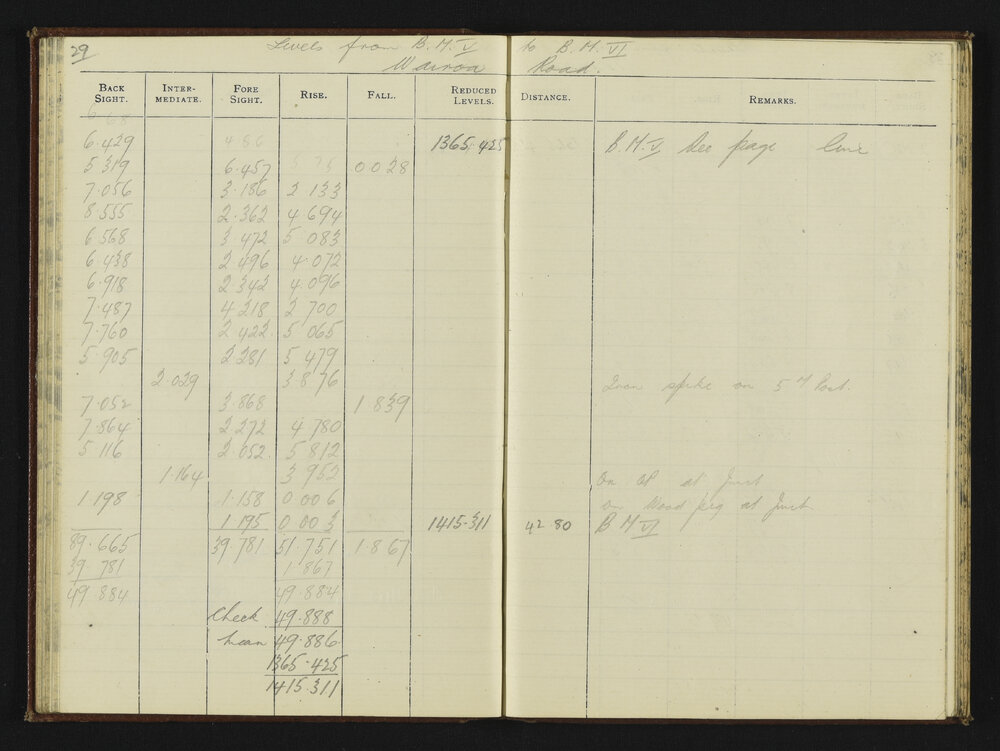 29 Levels from B.M. V to B.M. VI
Wairoa Road.
BACK SIGHT. INTER-MEDIATE. FORE SIGHT. RISE. FALL. REDUCED LEVELS. DISTANCE. REMARKS.
6.429 4.86 1365.425 B.M. V. See page
5.319 6.457 0.028
7.056 3.186 2 133
8.555 2.362 4 694
6.568 3.472 5 083
6.438 2 496 4.072
6.918 2.342 4.096
7.487 4 218 2 700
7.760 2 422 5 065
5.905 2 281 5 479
2.029 3 876 Iron spike on 5 M Post.
7.052 3.868 1 839
7.864 2 272 4 780
5 116 2.052 5 812
1.164 3 952 On at Junct
1 198 1.158 0 006 on Wood peg at Junct.
1 195 0 003 1415.311 42 80 B M VI
89.665 39.781 51.751 1.867
39.781 1 867
49.884 49.884
Check 49.888
Mean 49.886
1365.425
1415.311